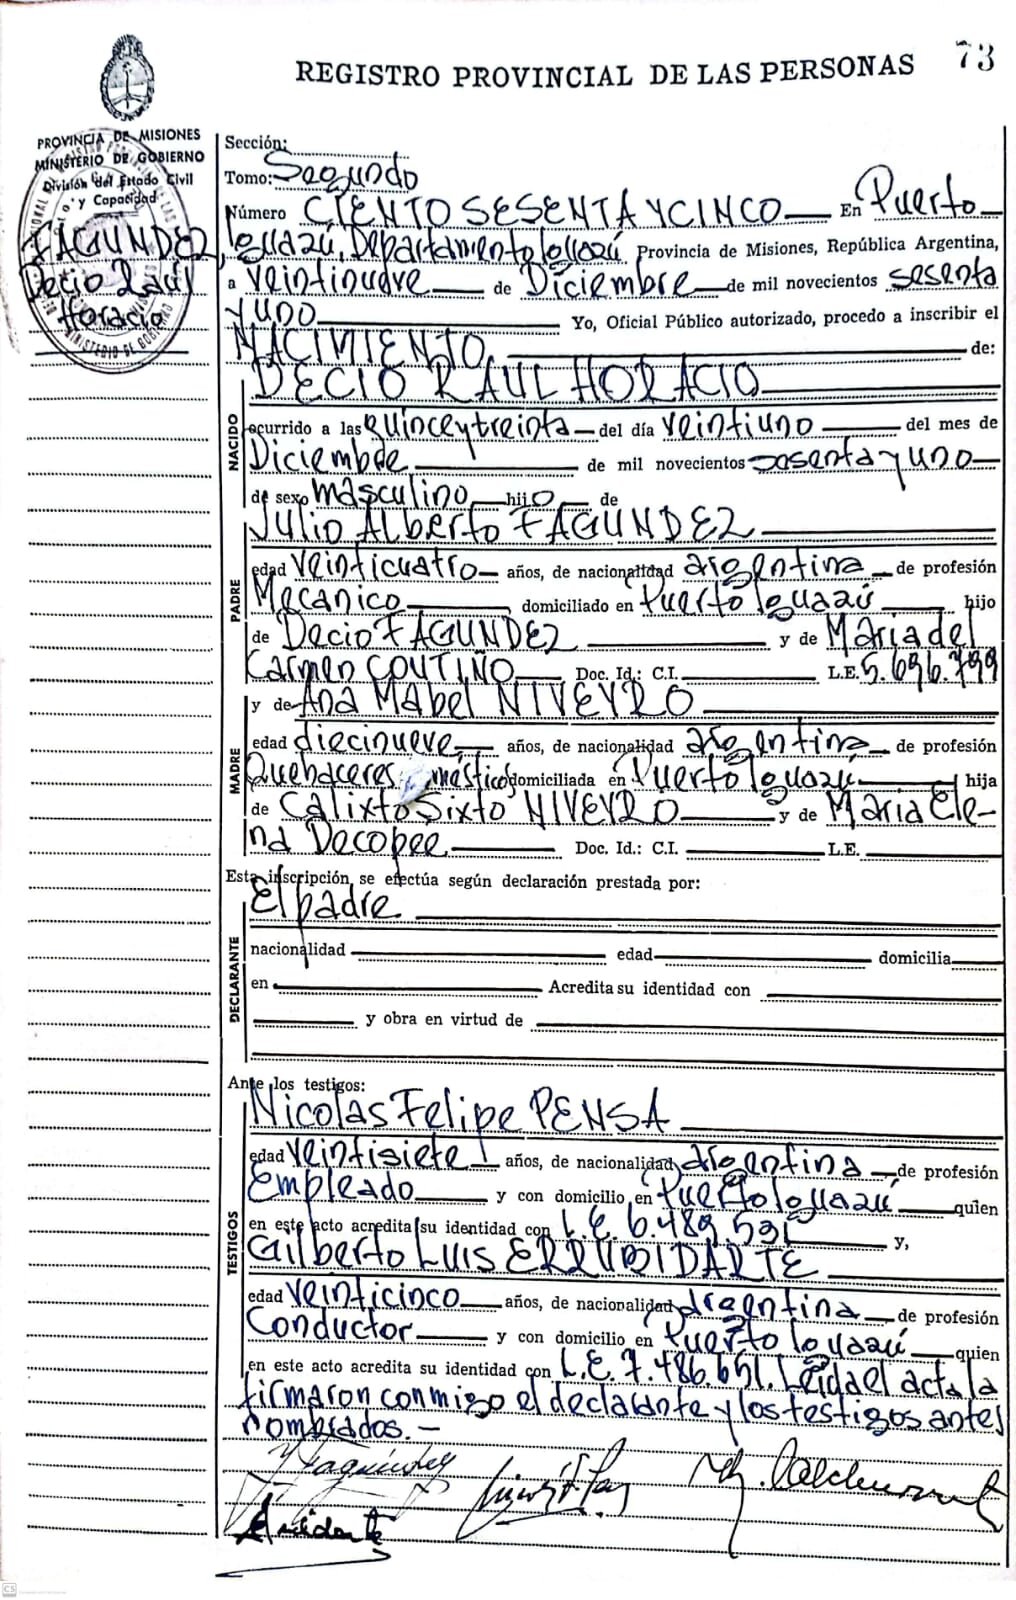 73
REGISTRO PROVINCIAL DE LAS PERSONAS
PROVINCIA DE MISIONES
MINISTERIO DE GOBIERNO
División del Estado Civil
y Capacidad
FAGUNDEZ
Decio Raúl
Horacio
Sección:
Tomo: Segundo
Número CIENTO SESENTA Y CINCO En Puerto
Iguazú, Departamento Iguazú Provincia de Misiones, República Argentina,
a veintinueve de Diciembre de mil novecientos sesenta
y uno Yo, Oficial Público autorizado, procedo a inscribir el
NACIMIENTO de:
DECIO RAUL HORACIO
NACIDO
ocurrido a las quince y treinta del día veintiuno del mes de
Diciembre de mil novecientos sesenta y uno
de sexo masculino hijo de
Julio Alberto FAGUNDEZ
PADRE
edad veinticuatro años, de nacionalidad argentina de profesión
Mecanico domiciliado en Puerto Iguazú hijo
de Decio FAGUNDEZ y de Maria del
Carmen COUTIÑO Doc. Id.: C.I. L.E. 5.696.799
y de Ana Mabel NIVEYRO
MADRE
edad diecinueve años, de nacionalidad argentina de profesión
Quehaceres domiciliada en Puerto Iguazú hija
de Calixto Sixto NIVEYRO y de Maria Ele-
na Decopee Doc. Id.: C.I. L.E.
Esta inscripción se efectúa según declaración prestada por:
El padre
DECLARANTE
nacionalidad edad domicilia
en Acredita su identidad con
y obra en virtud de
Ante los testigos:
Nicolas Felipe PENSA
TESTIGOS
edad veintisiete años, de nacionalidad argentina de profesión
Empleado y con domicilio en Puerto Iguazú quien
en este acto acredita su identidad con L.E. 6.489.591 y,
Gilberto Luis ERRUBIDARTE
edad veinticinco años, de nacionalidad argentina de profesión
Conductor y con domicilio en Puerto Iguazú quien
en este acto acredita su identidad con L.E. 7.486.651. Leida el acta la
firmaron conmigo el declarante y los testigos antes
nombrados.-
CS